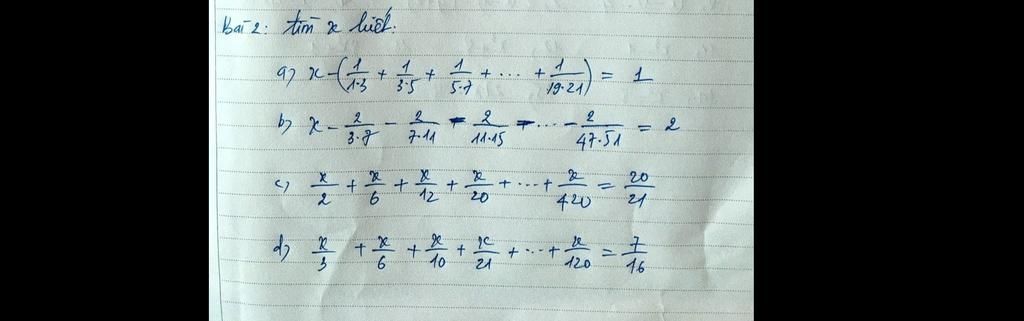 Bài 2: tìm x biết:
a) x - (1/1·3 + 1/3·5 + 1/5·7 + ... + 1/19·21) = 1
b) x - 2/3·7 - 2/7·11 - 2/11·15 - ... - 2/47·51 = 2
c) x/2 + x/6 + x/12 + x/20 + ... + x/420 = 20/21
d) x/3 + x/6 + x/10 + x/21 + ... + x/120 = 7/16